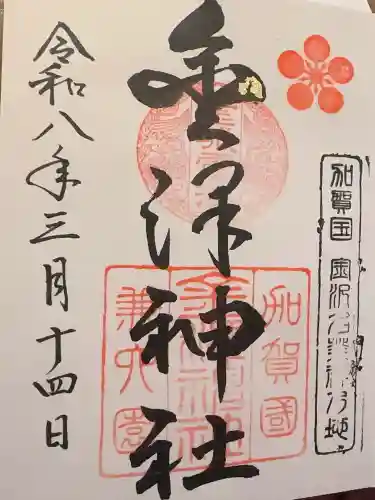 加賀国 金沢
金澤神社
加賀國
金澤神社
兼六園
令和八年三月十四日